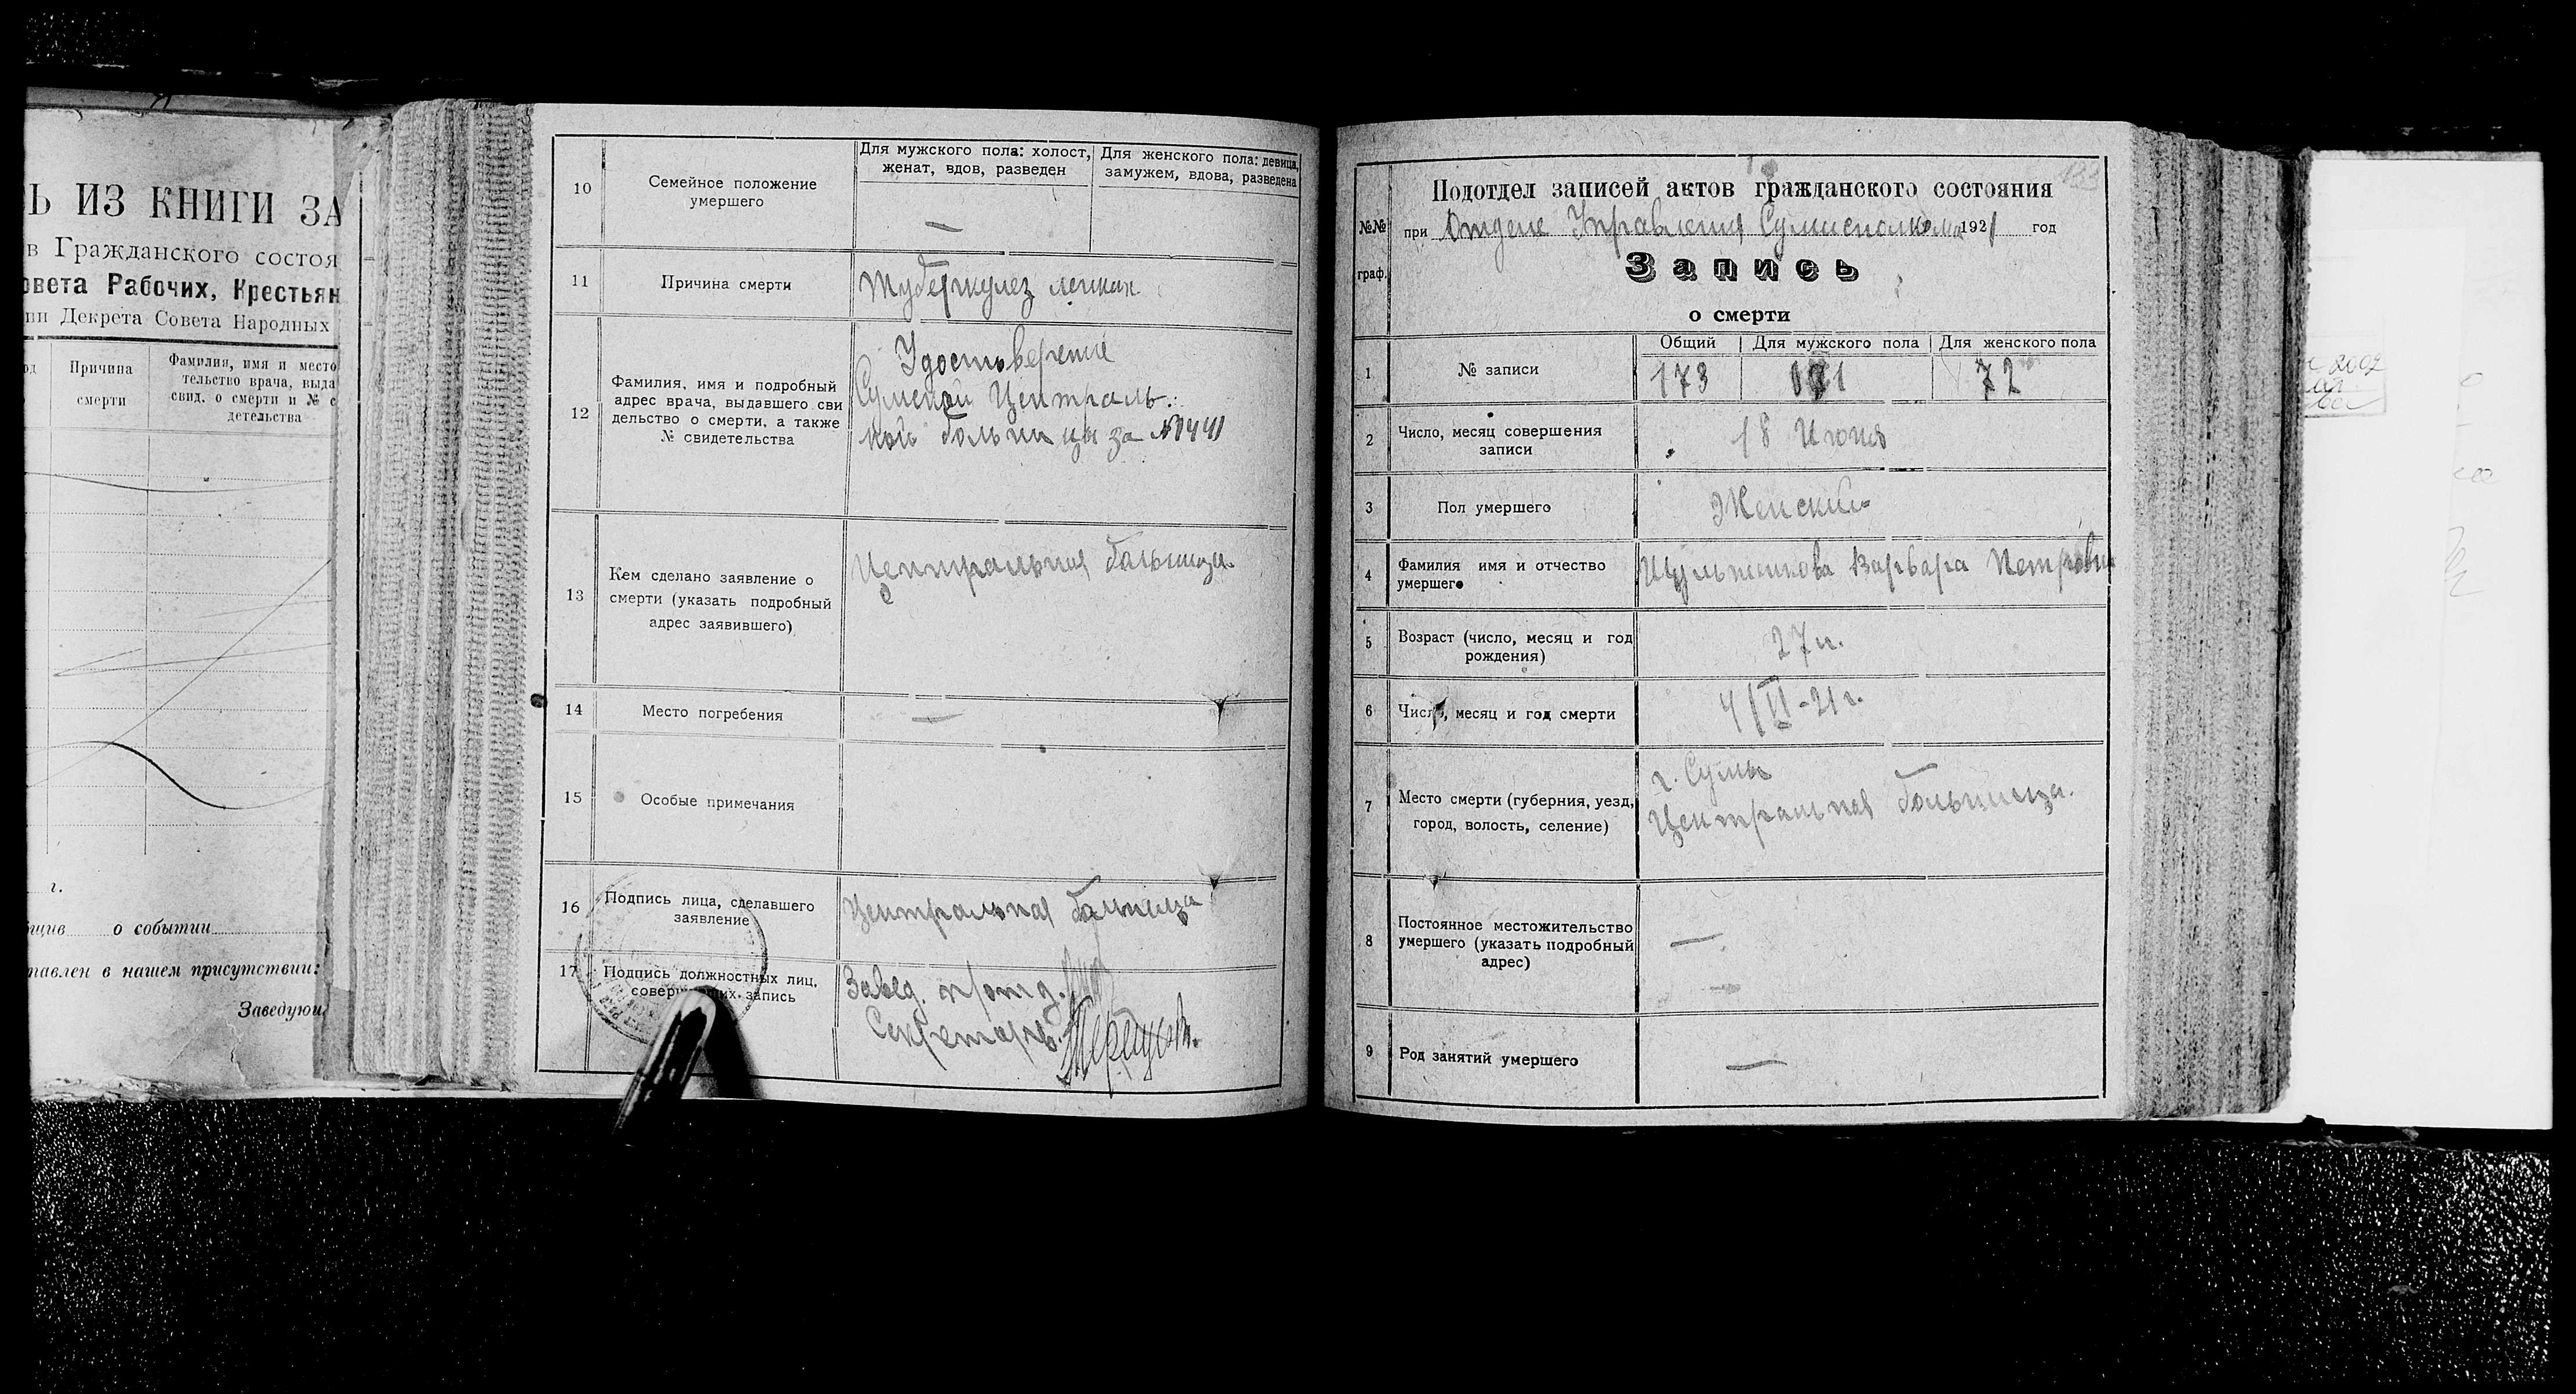 Ь ИЗ КНИГИ ЗА
в Гражданского состоя
овета Рабочих, Крестьян
нии Декрета Совета Народных
Причина
смерти
Фамилия, имя и место
тельство врача, выда
свид. о смерти и № с
детельства
г.
бщив о событии
тавлен в нашем присутствии:
Заведую
10
Семейное положение
умершего
Для мужского пола: холост,
женат, вдов, разведен
Для женского пола: девица,
замужем, вдова, разведена
—
11
Причина смерти
Туберкулез легких
12
Фамилия, имя и подробный
адрес врача, выдавшего сви
дельство о смерти, а также
№ свидетельства
Удостоверение
Сумской Централь-
ной больницы за №1441
13
Кем сделано заявление о
смерти (указать подробный
адрес заявившего)
Центральная больница
14
Место погребения
—
15
Особые примечания
16
Подпись лица, сделавшего
заявление
Центральная больница
17
Подпись должностных лиц,
совершивших запись
Завед. п/отд.
Секретарь
Подотдел записей актов гражданского состояния
№№
граф.
при Отделе Управления Сумисполкома 1921 год
Запись
о смерти
1
№ записи
Общий
Для мужского пола
Для женского пола
173
72
2
Число, месяц совершения
записи
18 Июня
3
Пол умершего
Женский
4
Фамилия имя и отчество
умершего
Варвара Петровна
5
Возраст (число, месяц и год
рождения)
27 л.
6
Число, месяц и год смерти
4/VI-21 г.
7
Место смерти (губерния, уезд,
город, волость, селение)
г. Сумы
Центральная больница.
8
Постоянное местожительство
умершего (указать подробный
адрес)
—
9
Род занятий умершего
—
2002